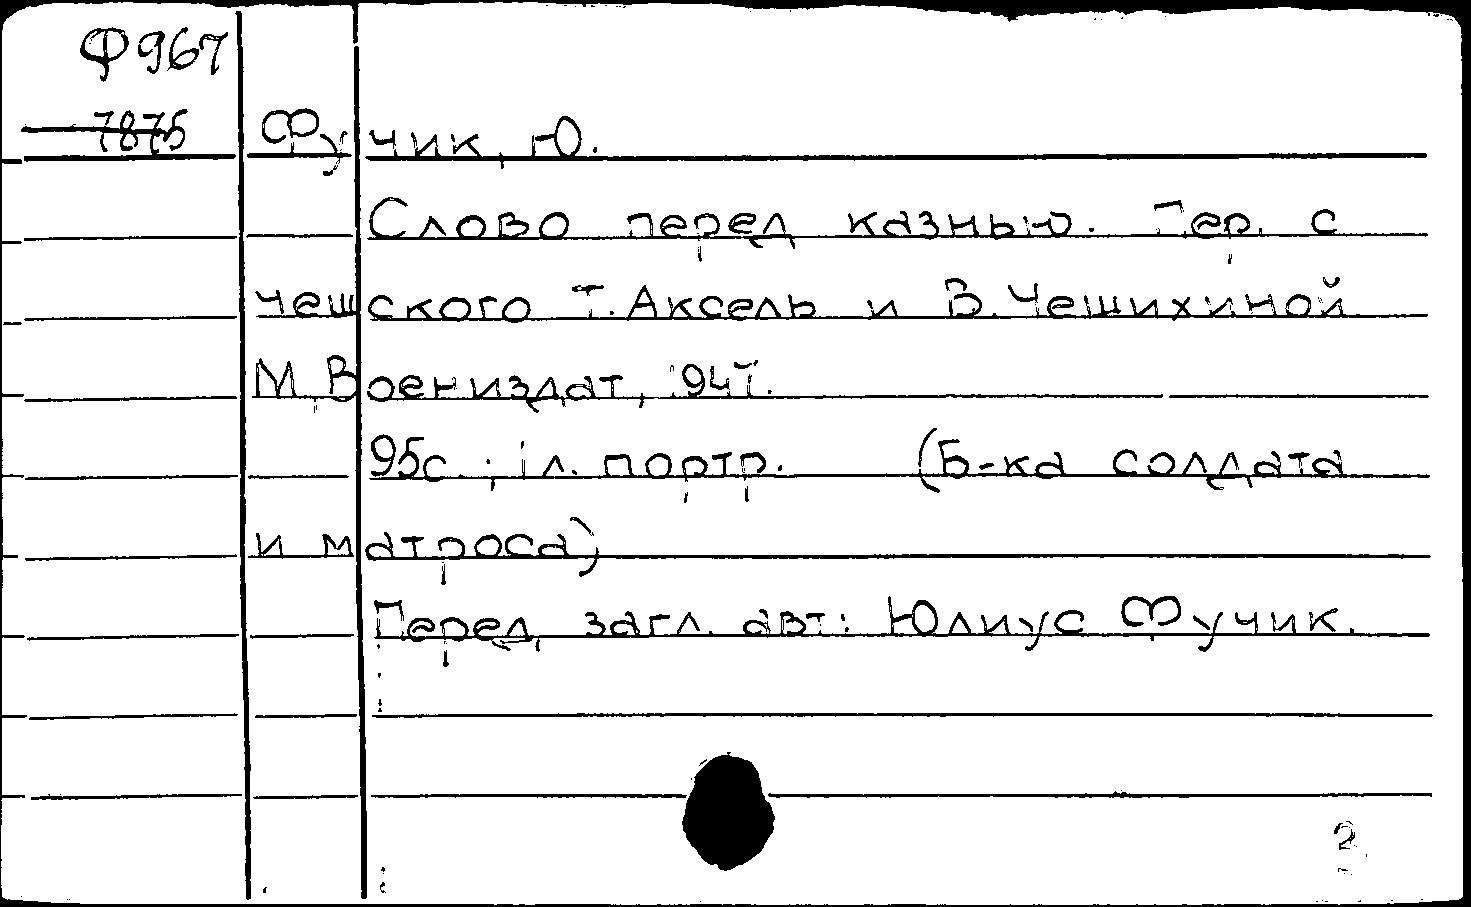 Ф967
7875
Фучик, Ю.
Слово перед казнью. Пер. с
чешского Т. Аксель и В. Чешихиной
М. Воениздат, 1947.
95с ; 1 л. портр. (Б-ка солдата
и матроса)
Перед загл. авт: Юлиус Фучик.
2